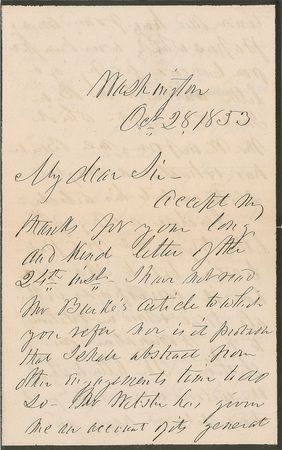 Washington
Oct 28, 1853
My dear Sir -
accept my
thanks for your long
and kind letter of the
24th inst - I have not read
Mr Burke's article to which
you refer nor is it probable
that I shall abstract from
other engagements time to do
so - Mr Webster has given
me an account of its general